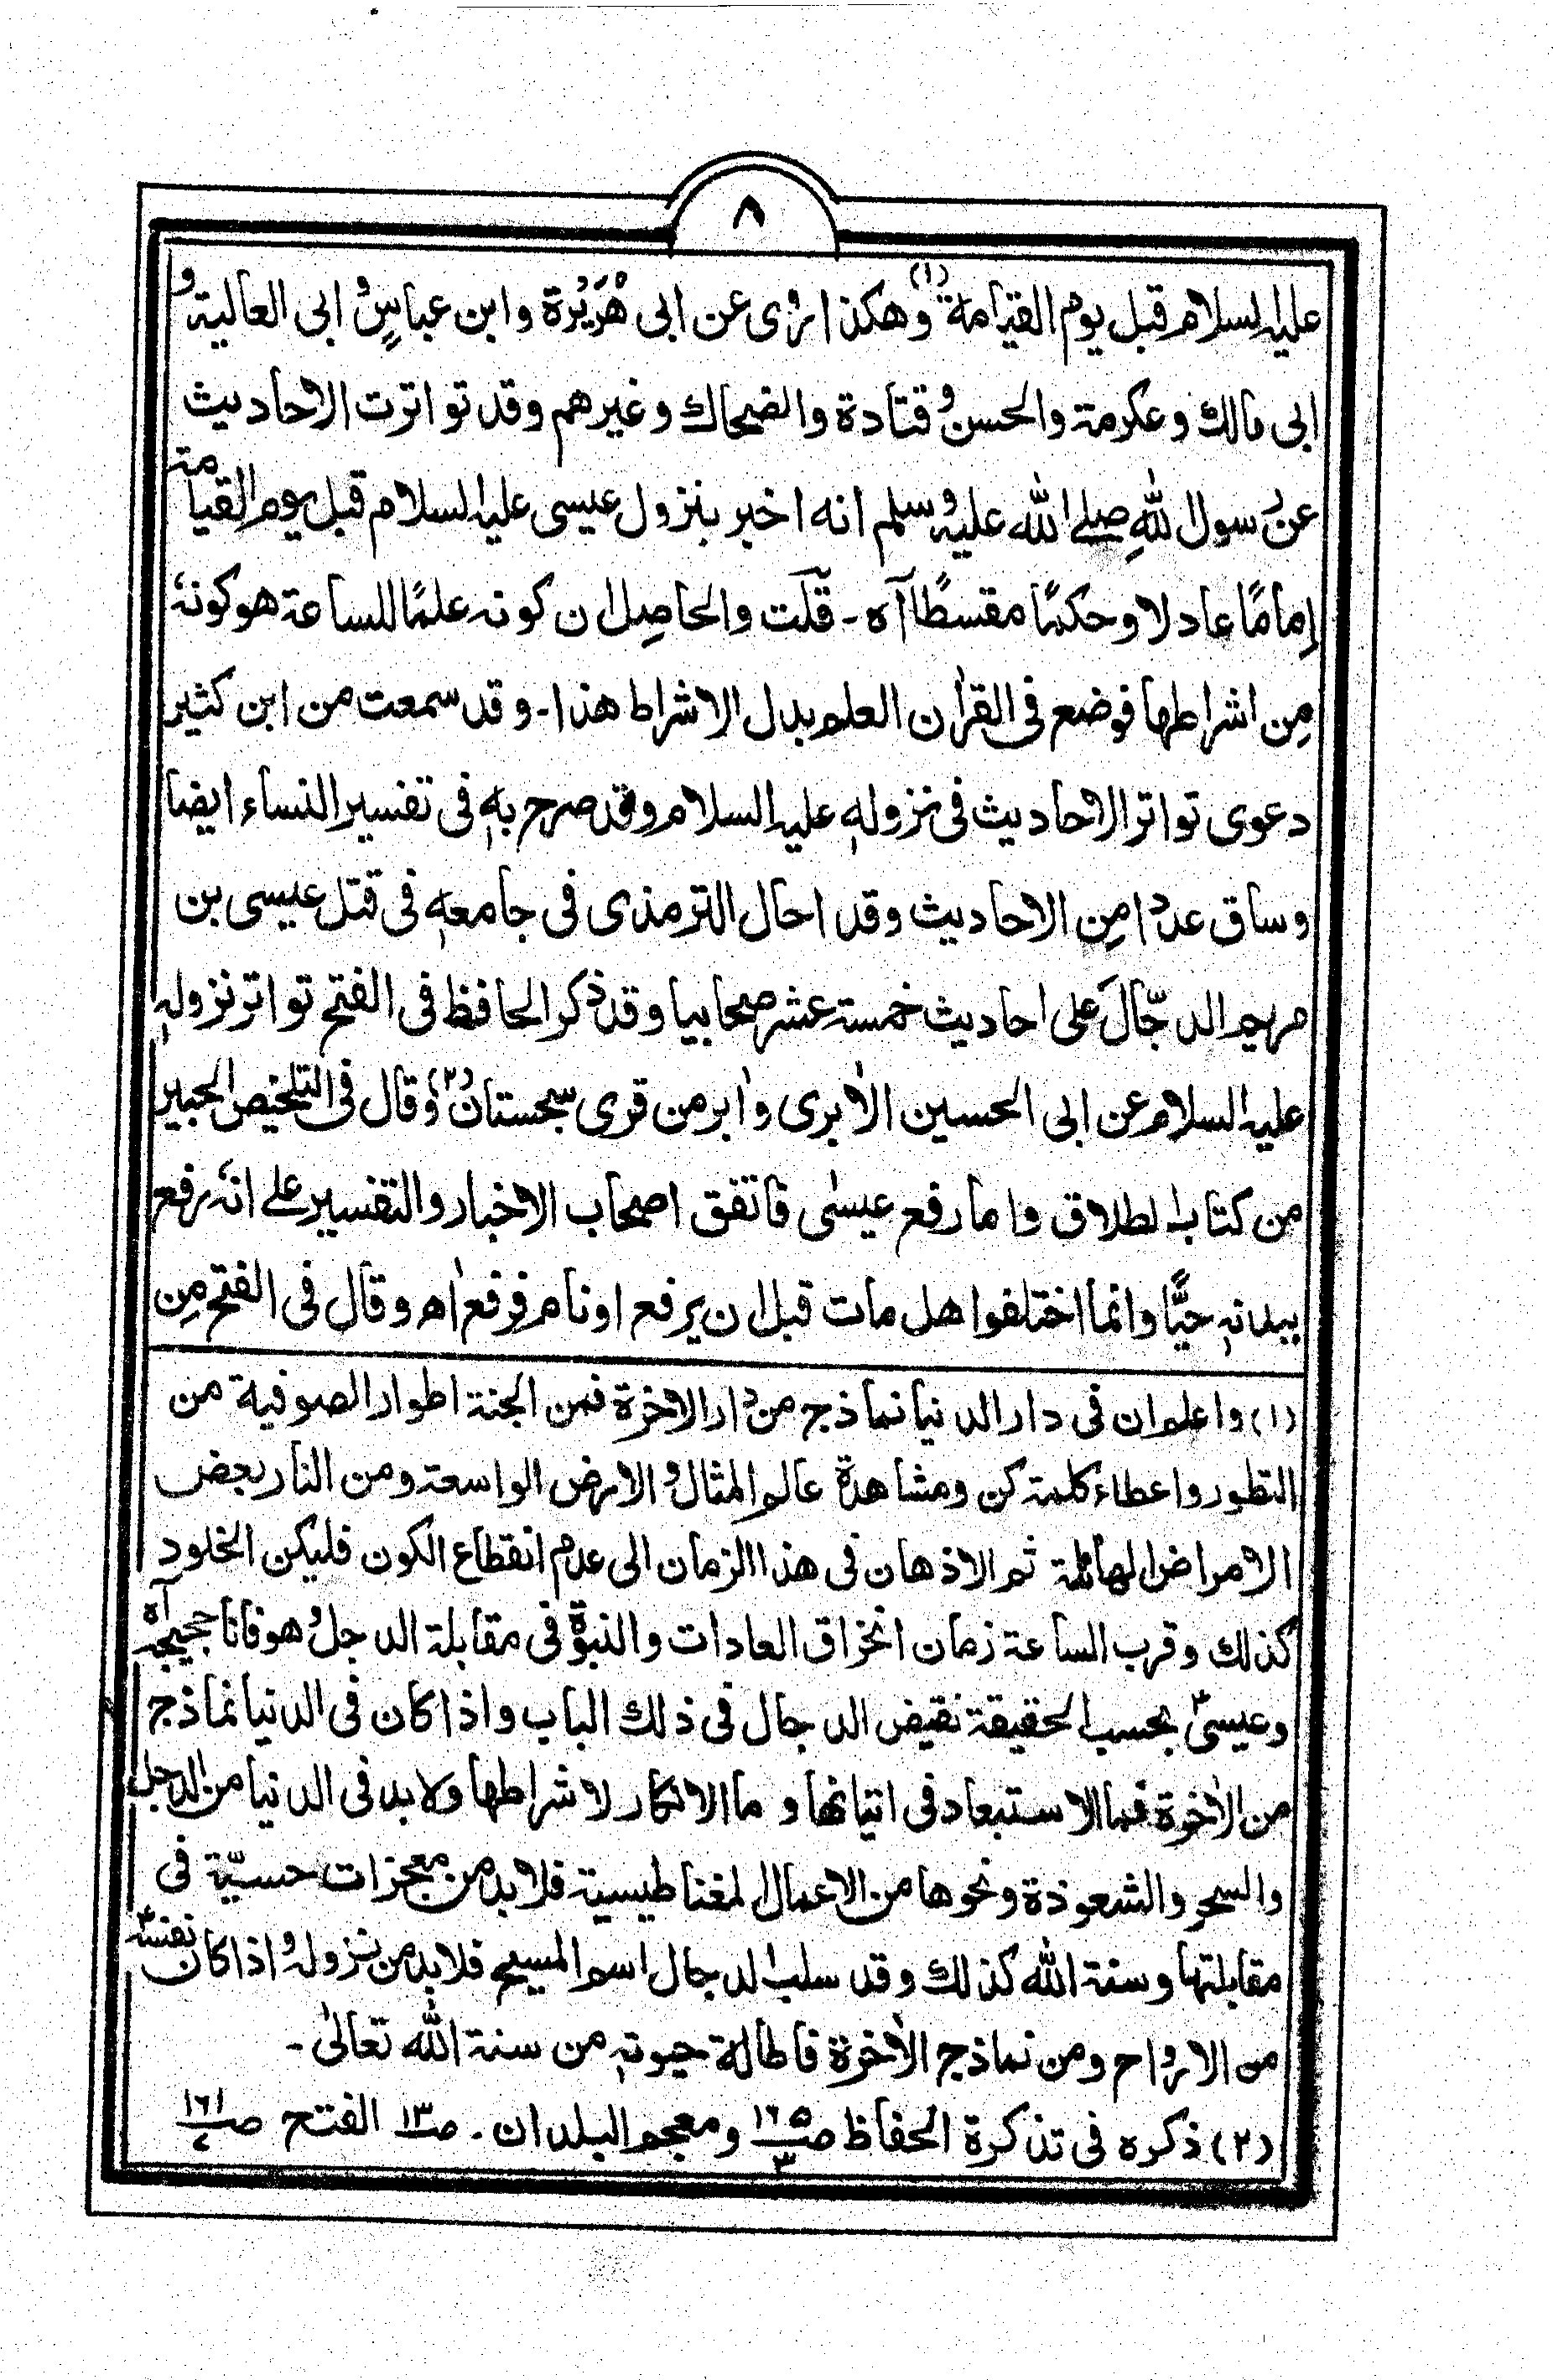 ٨
عليه السلام قبل يوم القيامة (١) وهكذا روى عن ابى هُرَيْرة وابن عباسٍ و ابى العالية و
ابى مالك وعكرمة والحسن و قتادة والضحاك وغيرهم وقد تواترت الاحاديث
عن رسول اللهِ صلے الله عليه وسلم انه اخبر بنزول عيسى عليه السلام قبل يوم القيامة
إمامًا عادلا وحكمًا مقسطًا آه ـ قلت والحاصل ان كونه علمًا للساعة هو كونهٗ
مِن اشراطها فوضع فى القراٰن العلم بدل الاشراط هذا ـ وقد سمعت من ابن كثير
دعوى تواتر الاحاديث فى نزولهٖ عليه السلام وقد صرح بهٖ فى تفسير النساء ايضا
وساق عددا مِن الاحاديث وقد احال الترمذى فى جامعهٖ فى قتل عيسى بن
مريم الدجّالَ على احاديث خمسة عشر صحابيا وقد ذكر الحافظ فى الفتح تواتر نزولهٖ
عليه السلام عن ابى الحسين الاٰبرى واٰبر من قرى سجستان (٢) وقال فى التلخيص الحبير
من كتاب الطلاق واما رفع عيسٰى فاتفق اصحاب الاخبار والتفسير علے انهٗ رفع
ببدنهٖ حيًّا وانما اختلفوا هل مات قبل ان يرفع او نام فرفع اٰه وقال فى الفتح مِن
(١) واعلم ان فى دار الدنيا نماذج من دار الاخرة فمن الجنة اطوار الصوفية من
التطور واعطاء كلمة كن ومشاهدة عالم المثال و الارض الواسعة ومن النار بعض
الامراض الهائلة ثم الاذهان فى هذا الزمان الى عدم انقطاع الكون فليكن الخلود
كذلك وقرب الساعة زمان انخراق العادات والنبوّة فى مقابلة الدجل و هو فانا حجيجه آه
وعيسىٰؑ بحسب الحقيقة نقيض الدجال فى ذلك الباب واذا كان فى الدنيا نماذج
من الاٰخرة فما الاستبعاد فى اتيانها و ما الانكار لاشراطها ولا بد فى الدنيا من الدجل
والسحر والشعوذة ونحوها من الاعمال المغناطيسية فلا بد من معجزات حسيّة فى
مقابلتها وسنة الله كذلك وقد سلب الدجال اسم المسيح فلا بد من نزوله و اذا كان نفسهٗ
من الارواح ومن نماذج الاٰخرة فاطالة حيوتهٖ من سنة الله تعالىٰ ـ
(٢) ذكره فى تذكرة الحفاظ صـ١٦٥/٣ ومعجم البلدان ـ صـ١٣ الفتح صـ١٦١/٤